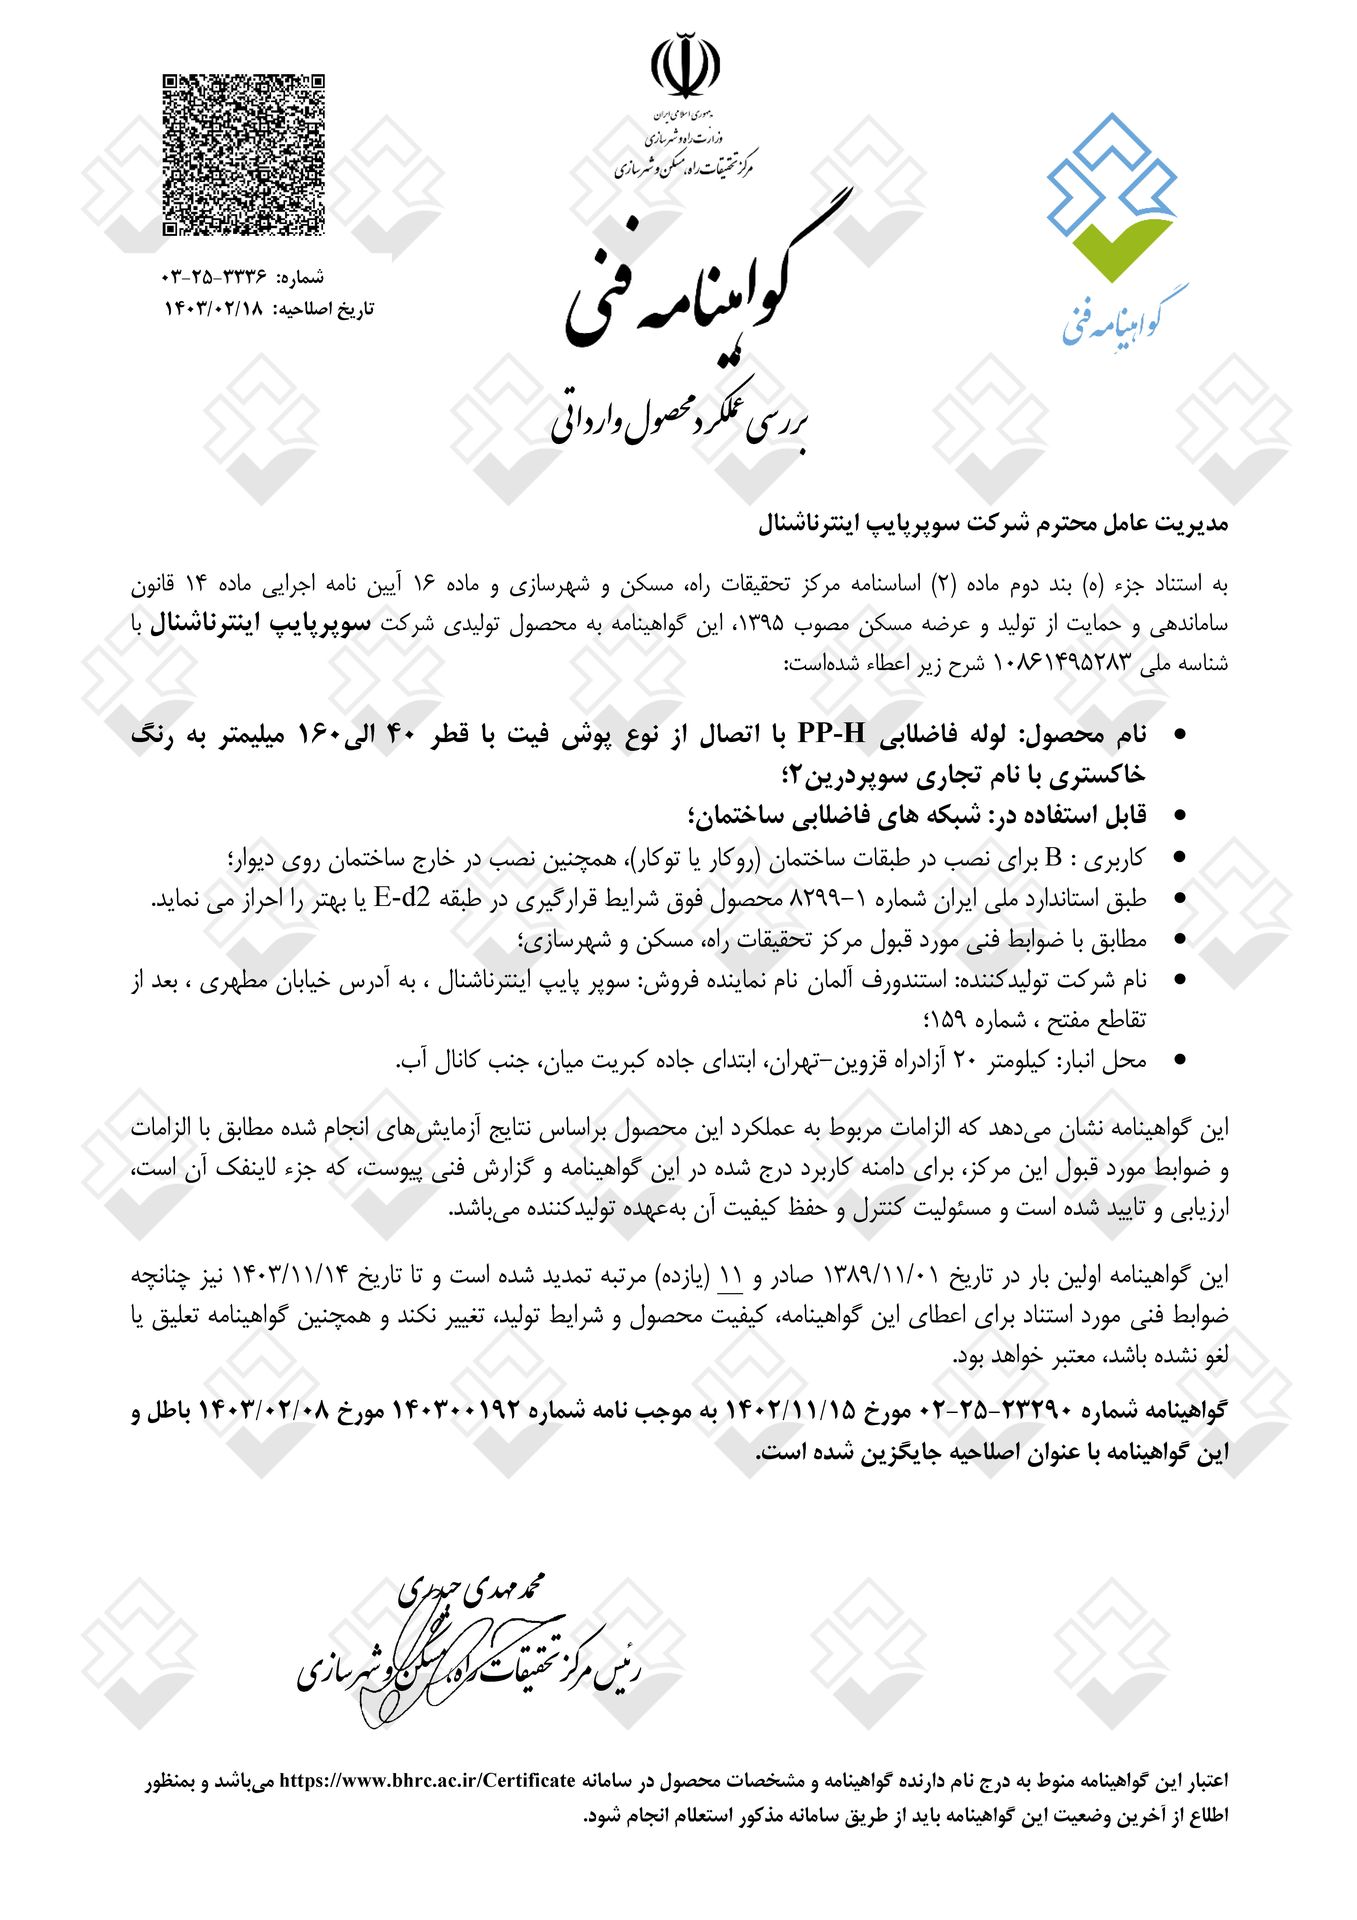 جمهوری اسلامی ایران
وزارت راه و شهرسازی
مرکز تحقیقات راه، مسکن و شهرسازی
گواهینامه فنی
شماره: ۰۳-۲۵-۳۳۳۶
تاریخ اصلاحیه: ۱۴۰۳/۰۲/۱۸
گواهینامه فنی
بررسی عملکرد محصول وارداتی
مدیریت عامل محترم شرکت سوپرپایپ اینترناشنال
به استناد جزء (ه) بند دوم ماده (۲) اساسنامه مرکز تحقیقات راه، مسکن و شهرسازی و ماده ۱۶ آیین نامه اجرایی ماده ۱۴ قانون
ساماندهی و حمایت از تولید و عرضه مسکن مصوب ۱۳۹۵، این گواهینامه به محصول تولیدی شرکت سوپرپایپ اینترناشنال با
شناسه ملی ۱۰۸۶۱۴۹۵۲۸۳ شرح زیر اعطاء شده‌است:
• نام محصول: لوله فاضلابی PP-H با اتصال از نوع پوش فیت با قطر ۴۰ الی۱۶۰ میلیمتر به رنگ
خاکستری با نام تجاری سوپردرین۲؛
• قابل استفاده در: شبکه های فاضلابی ساختمان؛
• کاربری : B برای نصب در طبقات ساختمان (روکار یا توکار)، همچنین نصب در خارج ساختمان روی دیوار؛
• طبق استاندارد ملی ایران شماره ۱-۸۲۹۹ محصول فوق شرایط قرارگیری در طبقه E-d2 یا بهتر را احراز می نماید.
• مطابق با ضوابط فنی مورد قبول مرکز تحقیقات راه، مسکن و شهرسازی؛
• نام شرکت تولیدکننده: استندورف آلمان نام نماینده فروش: سوپر پایپ اینترناشنال ، به آدرس خیابان مطهری ، بعد از
تقاطع مفتح ، شماره ۱۵۹؛
• محل انبار: کیلومتر ۲۰ آزادراه قزوین-تهران، ابتدای جاده کبریت میان، جنب کانال آب.
این گواهینامه نشان می‌دهد که الزامات مربوط به عملکرد این محصول براساس نتایج آزمایش‌های انجام شده مطابق با الزامات
و ضوابط مورد قبول این مرکز، برای دامنه کاربرد درج شده در این گواهینامه و گزارش فنی پیوست، که جزء لاینفک آن است،
ارزیابی و تایید شده است و مسئولیت کنترل و حفظ کیفیت آن به‌عهده تولیدکننده می‌باشد.
این گواهینامه اولین بار در تاریخ ۱۳۸۹/۱۱/۰۱ صادر و ۱۱ (یازده) مرتبه تمدید شده است و تا تاریخ ۱۴۰۳/۱۱/۱۴ نیز چنانچه
ضوابط فنی مورد استناد برای اعطای این گواهینامه، کیفیت محصول و شرایط تولید، تغییر نکند و همچنین گواهینامه تعلیق یا
لغو نشده باشد، معتبر خواهد بود.
گواهینامه شماره ۲۳۲۹۰-۲۵-۰۲ مورخ ۱۴۰۲/۱۱/۱۵ به موجب نامه شماره ۱۴۰۳۰۰۱۹۲ مورخ ۱۴۰۳/۰۲/۰۸ باطل و
این گواهینامه با عنوان اصلاحیه جایگزین شده است.
محمد مهدی حیدری
رئیس مرکز تحقیقات راه، مسکن و شهرسازی
اعتبار این گواهینامه منوط به درج نام دارنده گواهینامه و مشخصات محصول در سامانه https://www.bhrc.ac.ir/Certificate می‌باشد و بمنظور
اطلاع از آخرین وضعیت این گواهینامه باید از طریق سامانه مذکور استعلام انجام شود.